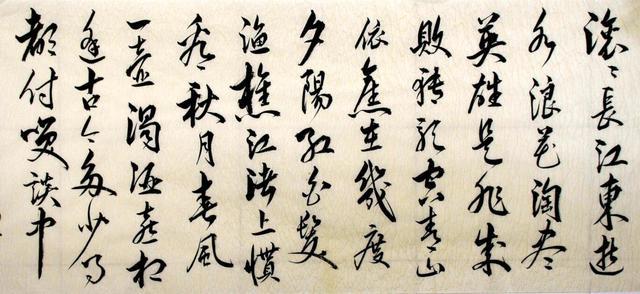 滚〻長江東逝
水浪花淘尽
英雄是非成
敗轉頭空青山
依舊在幾度
夕陽紅白髮
漁樵江渚上慣
看秋月春風
一壺濁酒喜相
逢古今多少事
都付笑談中